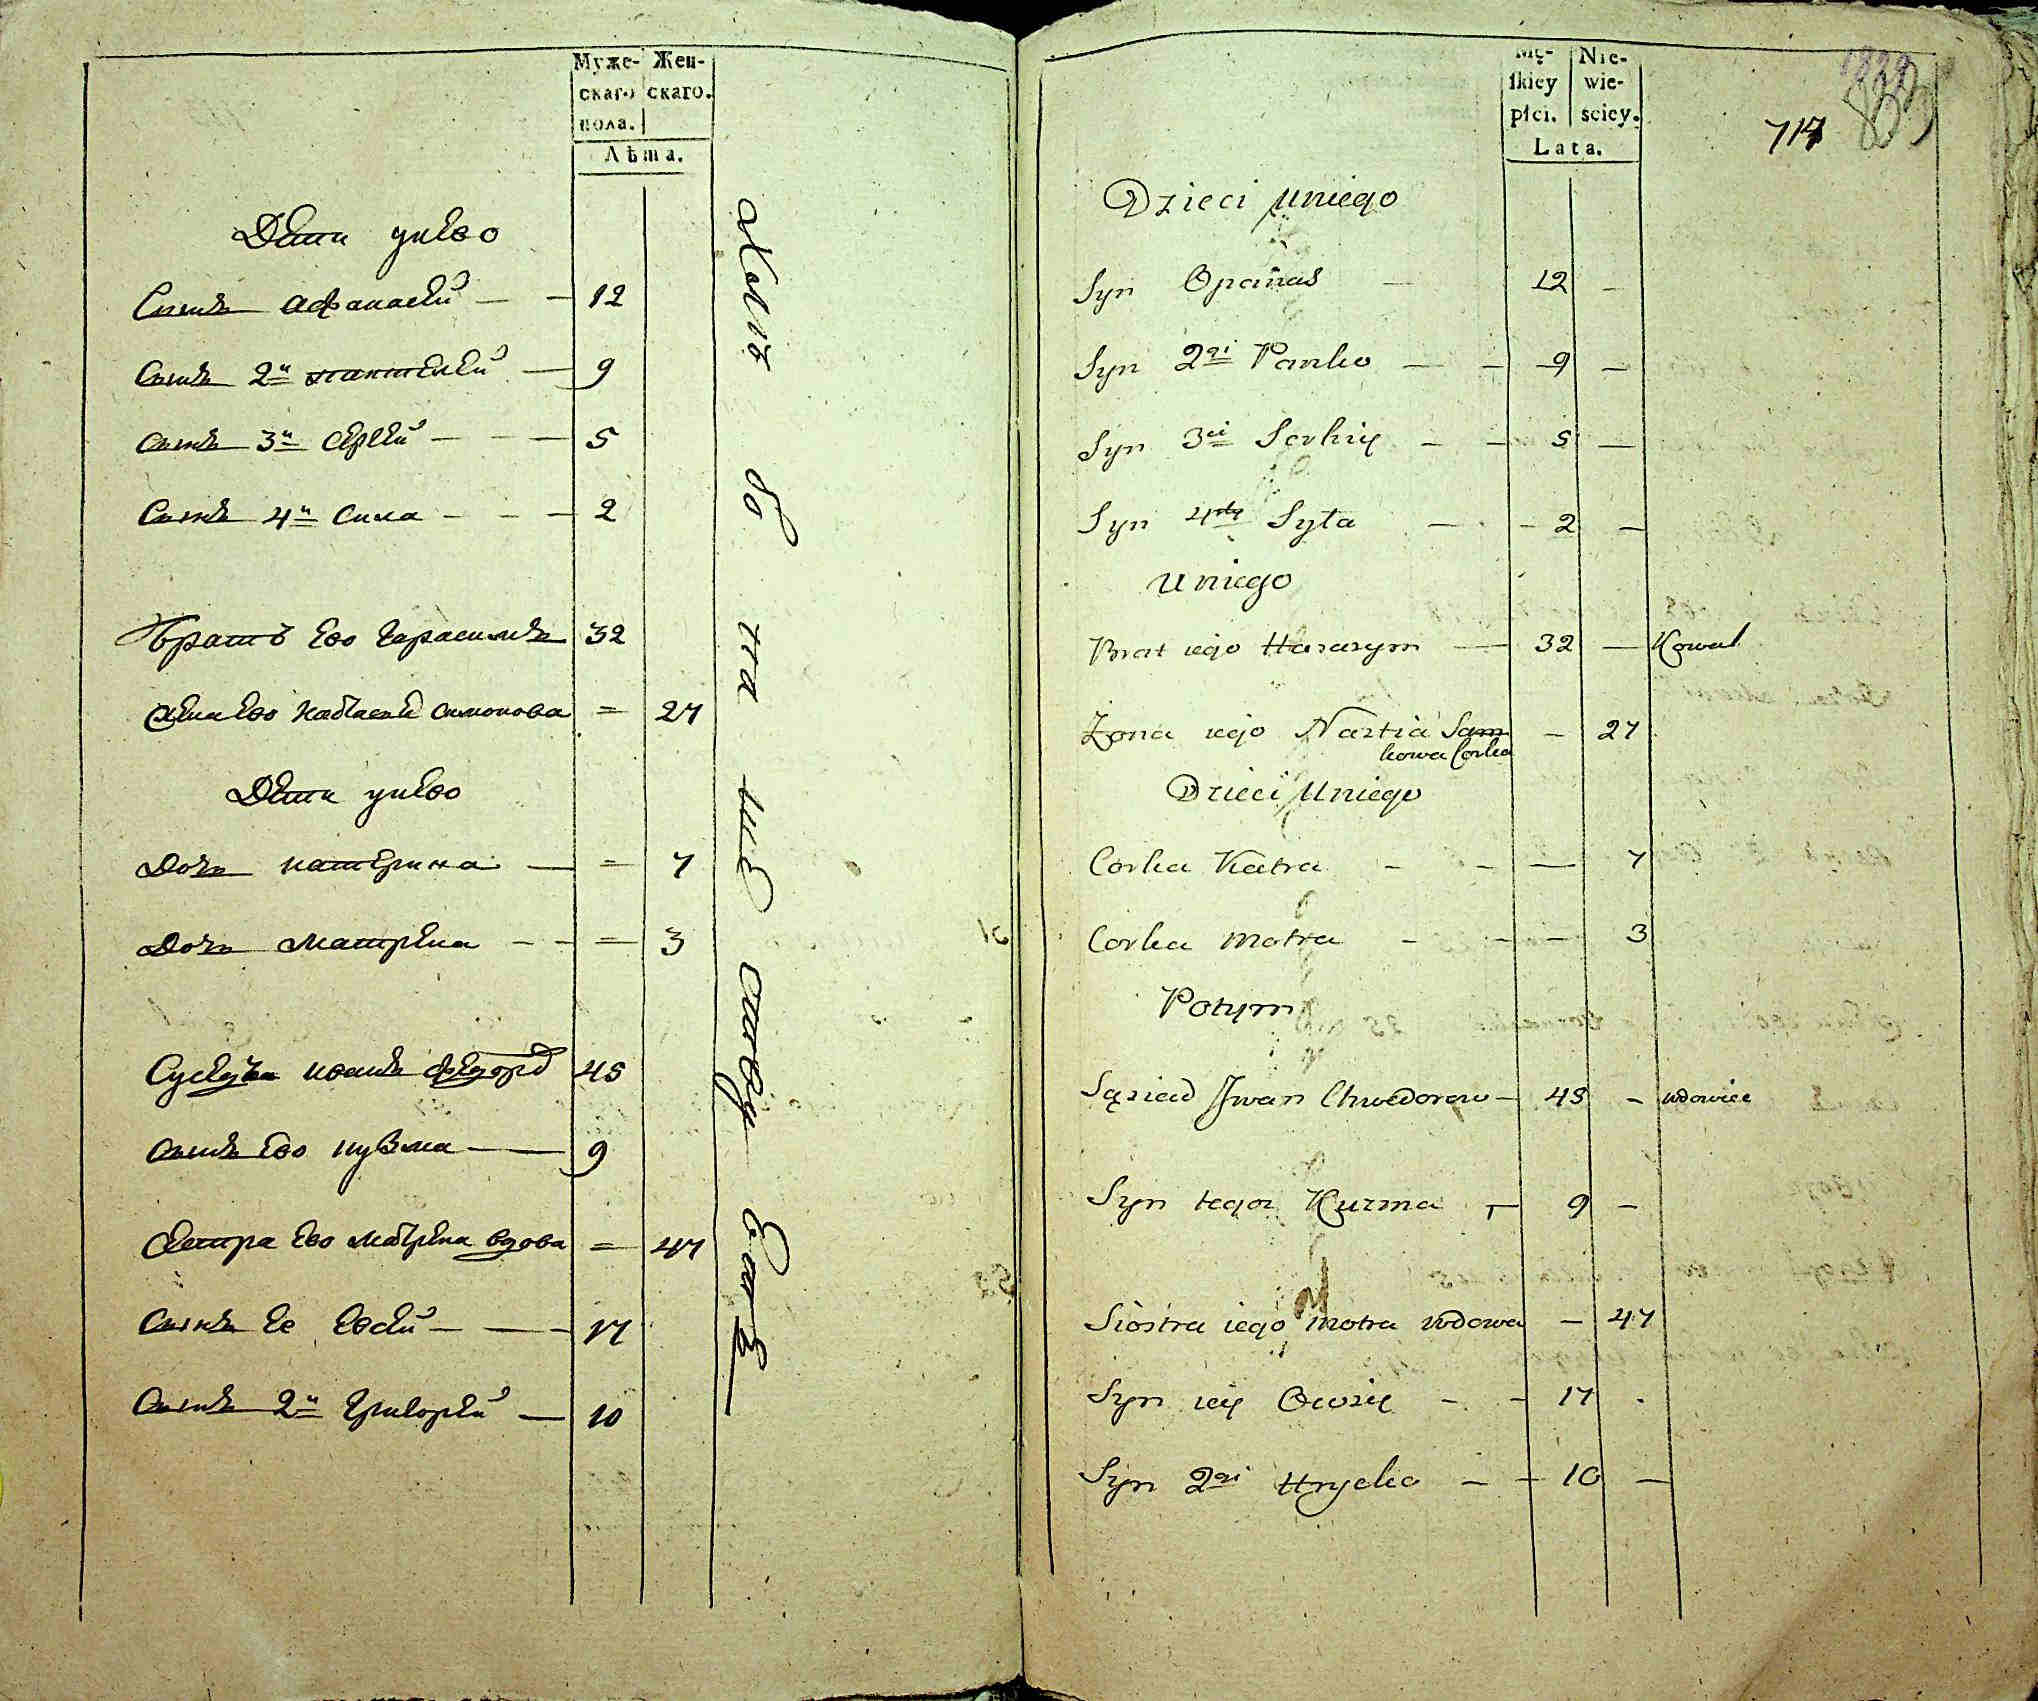 Муже- Жен-
скаго скаго.
пола.
Лѣта.
Дети унево
Сынъ Афанасей — — 12
Сынъ 2й Пантелей — 9
Сынъ 3й Сергей — — — 5
Сынъ 4й Сила — — — 2
Братъ ево Герасимъ 32
Жена ево Настасья Симонова = 27
Дети унево
Дочь Катерина — = 7
Дочь Матрена — — = 3
Суседъ Иванъ Федоров 45
Сынъ ево Кузма — 9
Сестра ево Матрена вдова = 47
Сынъ ее Евсей — — — 17
Сынъ 2й Григорей — 10
Mę- Nie-
skiey wie-
płci. sciey.
Lata.
717
Dzieci Uniego
Syn Opanas — 12 —
Syn 2gi Panko — — 9 —
Syn 3ci Serhiy — — 5 —
Syn 4ty Syła — — 2 —
Uniego
Brat iego Harasym — 32 — Kowal
Żona iego Nastia Sam
kowa Corka — 27
Dzieci Uniego
Corka Katra — — — 7
Corka Motra — — — 3
Potym
Sąsiad Jwan Chwedorow — 45 — wdowiec
Syn tegoz Kuzma — 9 —
Siostra iego Motra wdowa — 47
Syn iey Owsiy — — 17 .
Syn 2gi Hrycko — — 10 —